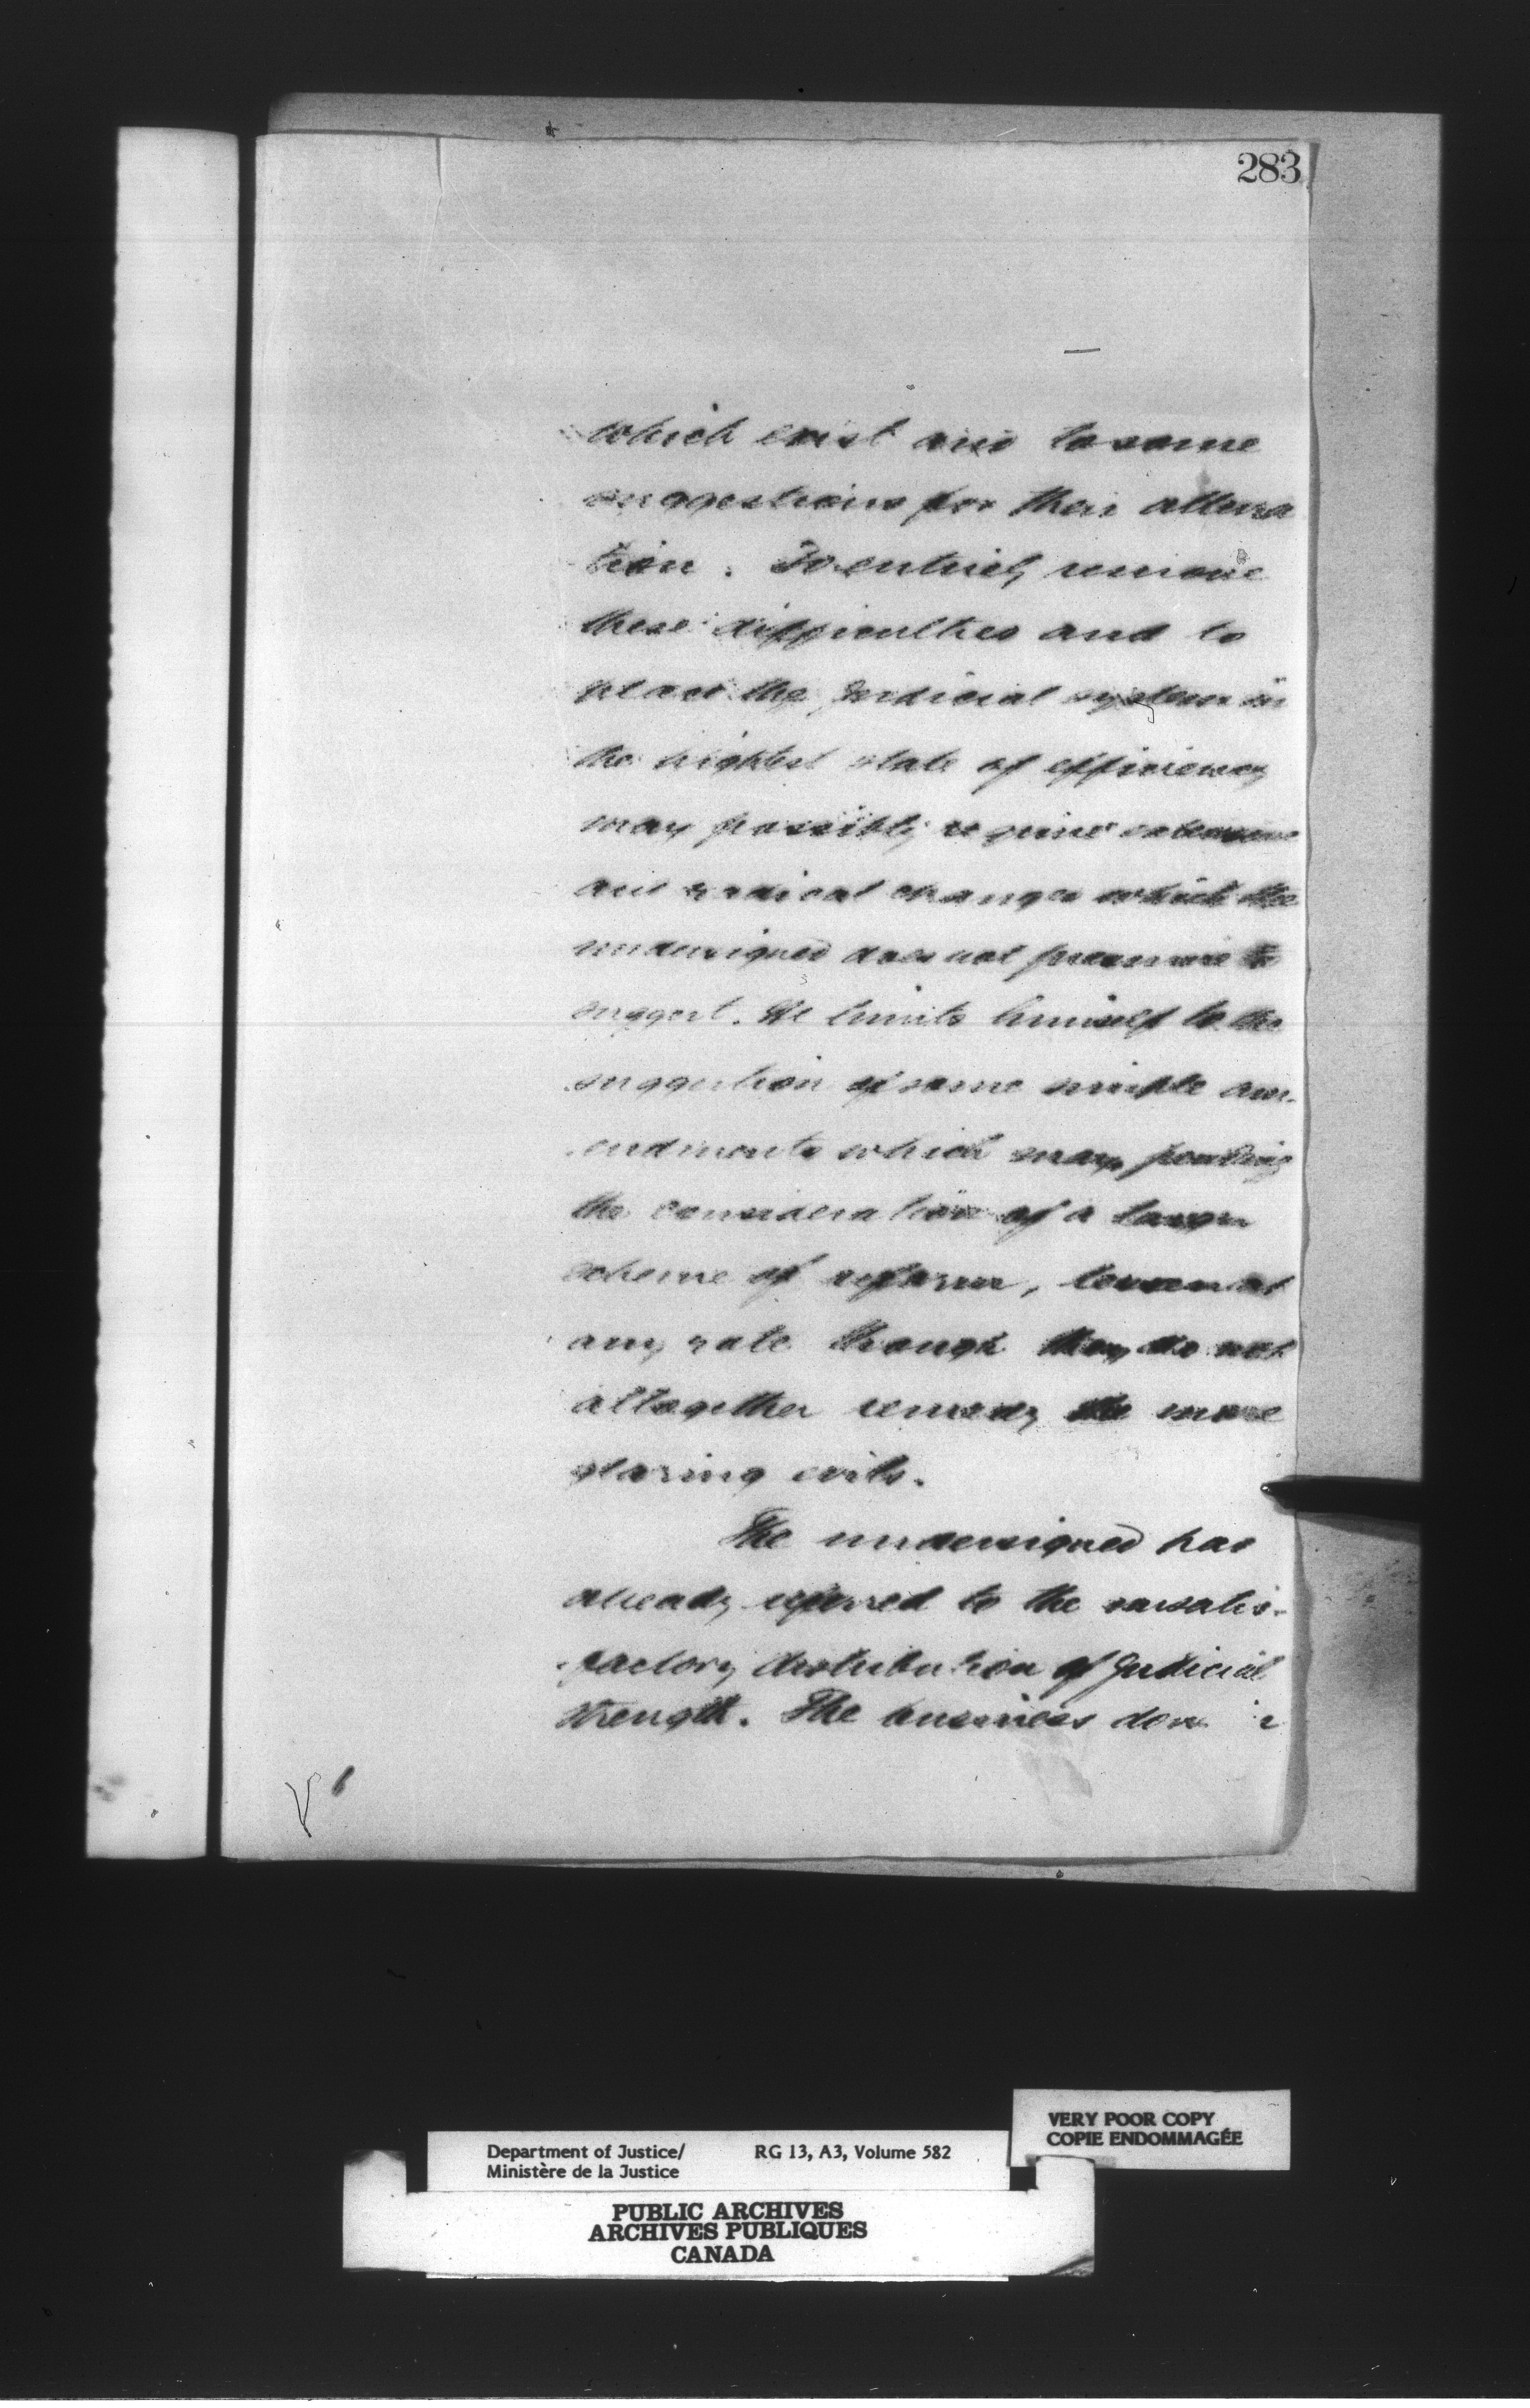 283
which exist and to some
suggestions for their altera
tion. To entirely remove
these difficulties and to
place the judicial system in
the highest state of efficiency
may possibly require extensive
and radical changes which the
undersigned does not presume to
suggest. He limits himself to the
suggestion of some simple am-
endments which may, pending
the consideration of a larger
scheme of reform, lessen at
any rate though they do not
altogether remedy the more
glaring evils.
The undersigned has
already referred to the unsatis-
factory distribution of Judicial
strength. The business done
VERY POOR COPY
COPIE ENDOMMAGÉE
Department of Justice/ RG 13, A3, Volume 582
Ministère de la Justice
PUBLIC ARCHIVES
ARCHIVES PUBLIQUES
CANADA